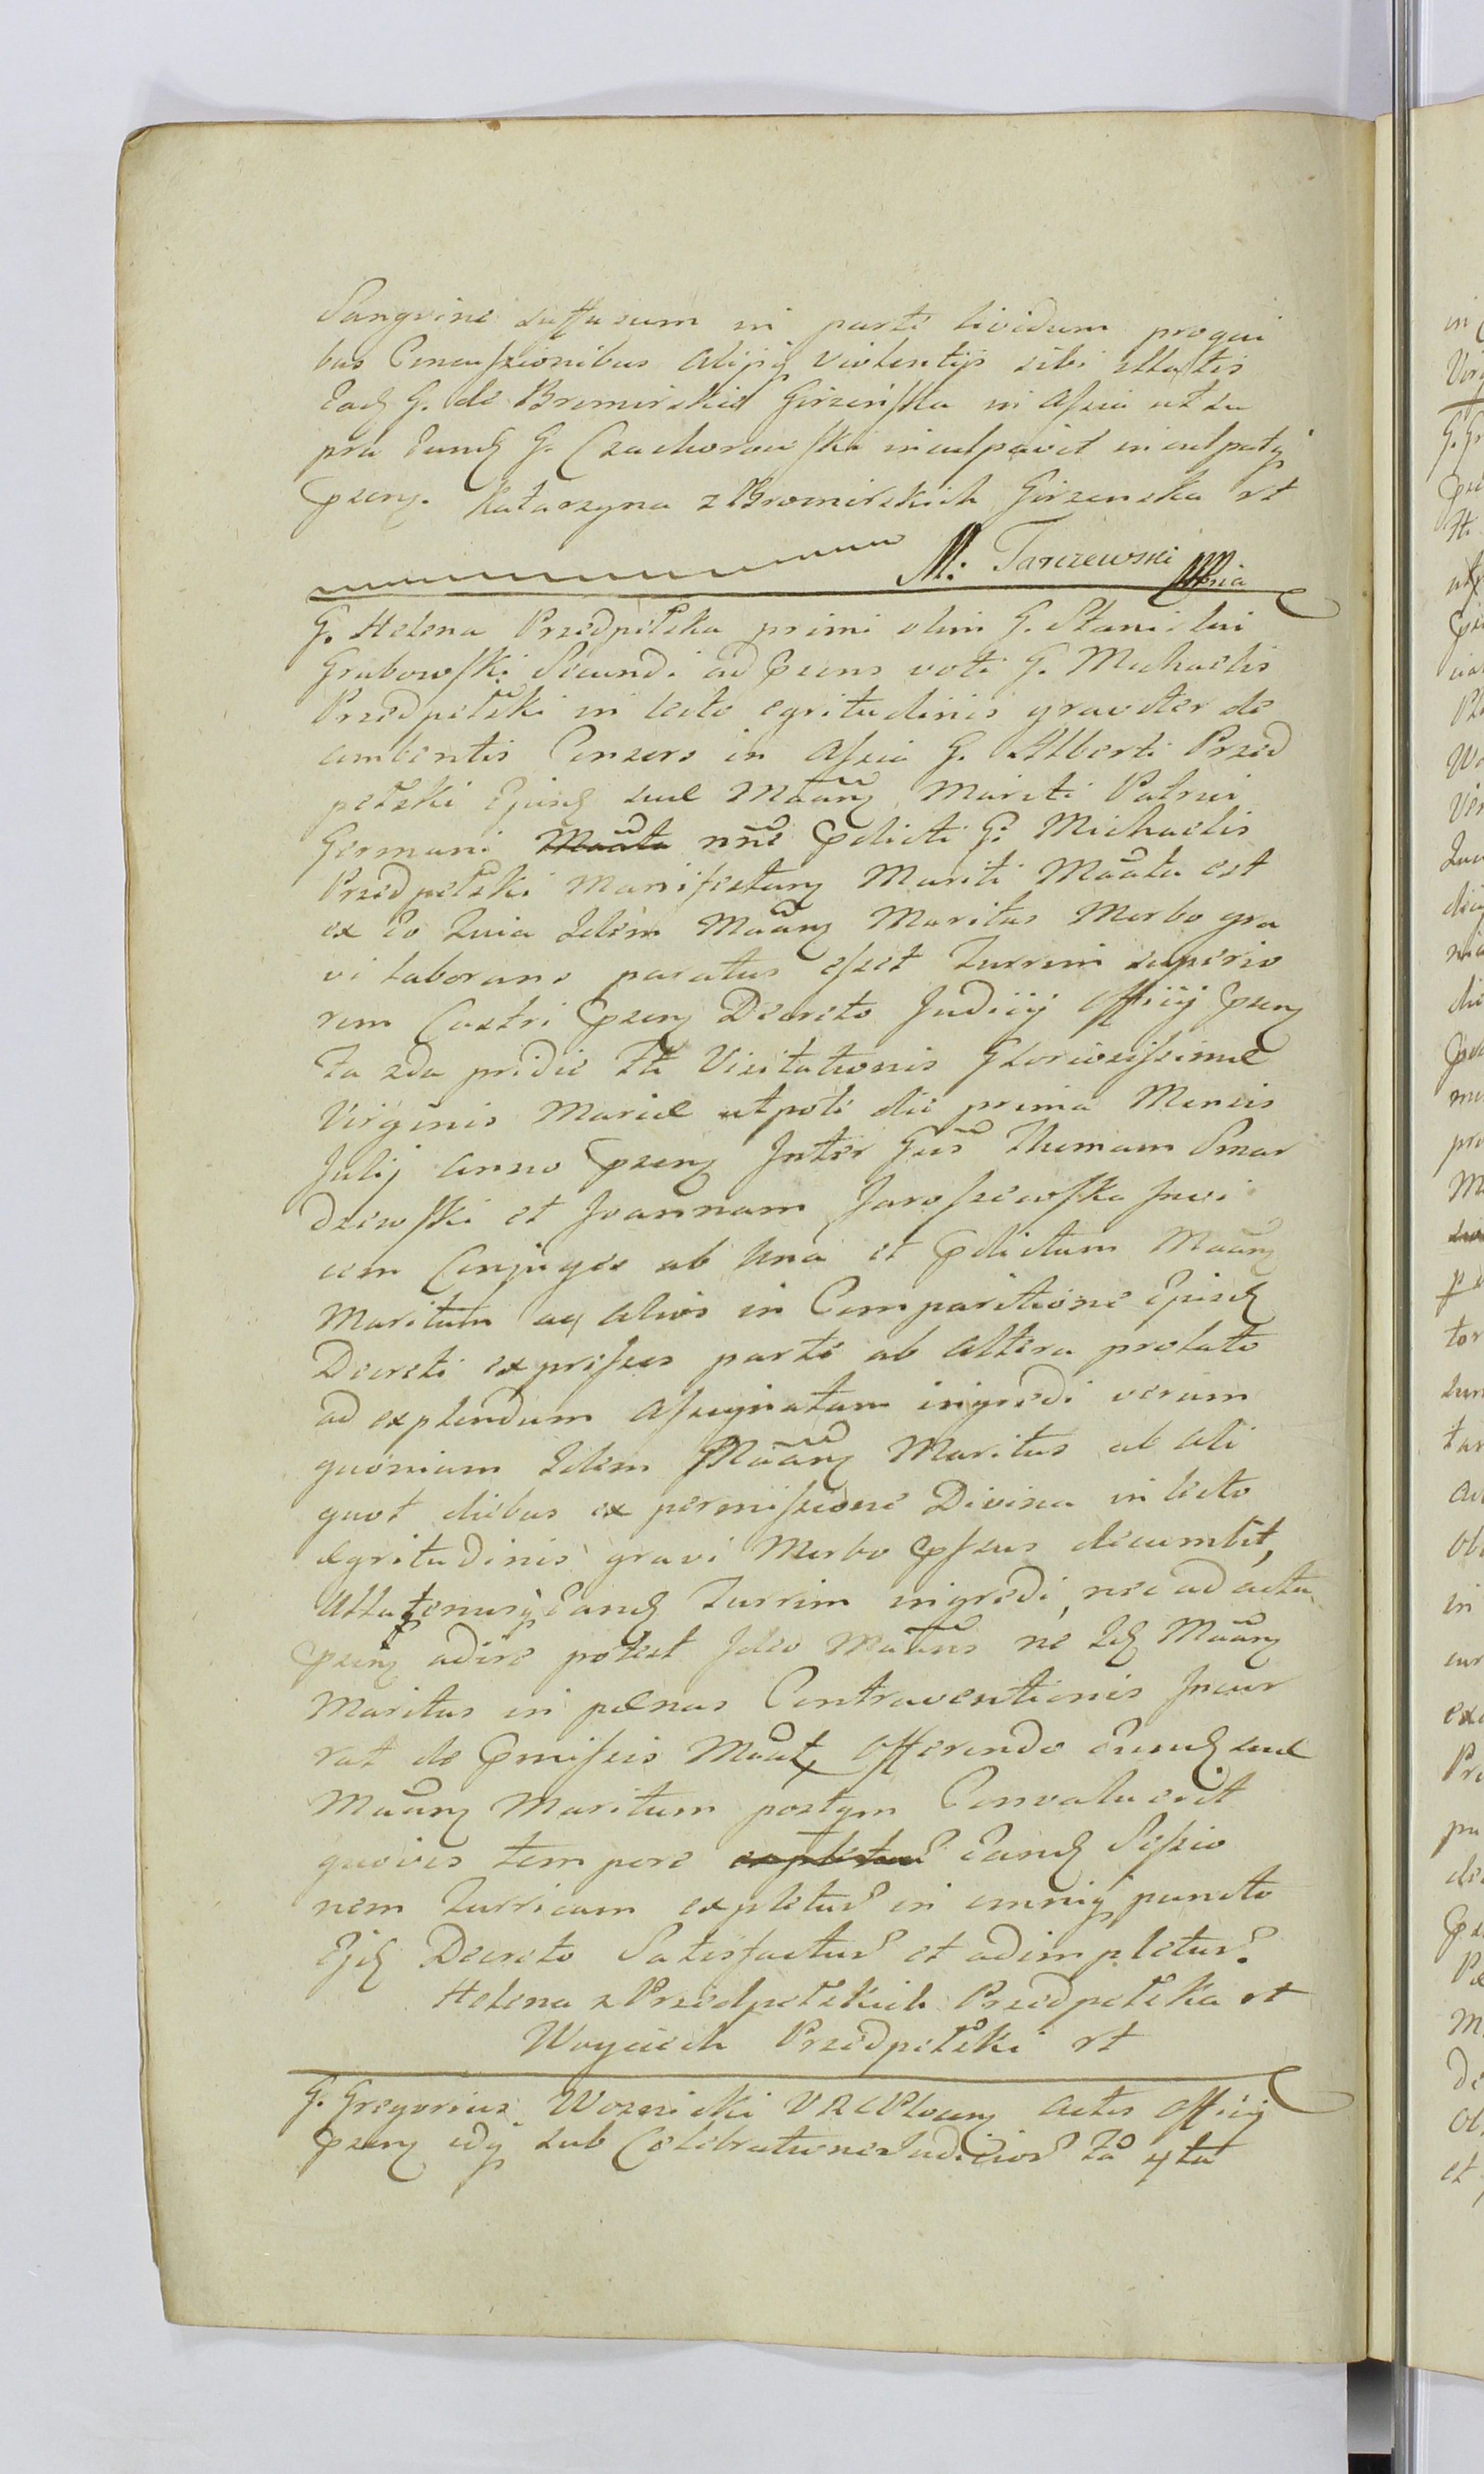 Sangvine suffusum in parte lividum pro qui
bus Concussionibus alijsq violentijs sibi illatis
Ead G. de Bromirskie Girzeńska in assia ut su
pra Eund G. Czachorowski inculpavit inculpatq
psenz. Katarzyna z Bromirskich Girzenska rt
M: Tarczewski
G. Helena Przedpełska primi olim G. Stanislai
Grabowski Secundi ad psens voti G. Michaelis
Przedpełski in lecto egritudinis graviter de
cumbentis Consors in assia G. Alberti Przed
pełski Ejusd suae Maanz Mariti Patrui
Germani nne pdicti G. Michaelis
Przedpełski Manifestanz Mariti Maata est
ex Eo Quia Idem Maanz Maritus Morbo gra
vi laborans paratus esset Turrim superio
rem Castri psenz Decreto Judicij Officij psenz
Fa 2da pridie Fti Visitationis Gloriosissimae
Virginis Mariae utpote die prima Mensis
Julij anno psenz Inter Gūs Thomam Smar
dzewski et Joannam Jaroszewska Invi
cem Conjuges ab Una et pdictum Maanz
Maritum aq alios in Comparitione Ejusd
Decreti expressos parte ab altera prolato
ad explendum assignatam ingredi verum
quoniam Idem Maanz Maritus ab ali
quot diebus ex permissione Divina in lecto
egritudinis gravi Morbo pssus decumbit,
Ullatenusq Eand Turrim ingredi, nec ad acta
psenz adire potest Ideo Maans ne Id Maanz
Maritus in paenas Contraventionis Incur
rat de pmissis Maat Offerendo Eund suae
Maanz Maritum postqm Convaluerit
quovis tempore Eand Sessio
nem Turricam expletur in omniq puncto
Ejd Decreto Satisfactur et adimpletur.
Helena z Przedpełskich Przedpełska rt
Woyciech Przedpełski rt
G. Gregorius Woznicki V R C Plocenz Actis Officij
psenz idq sub Celebratione Judicior Fa 4ta